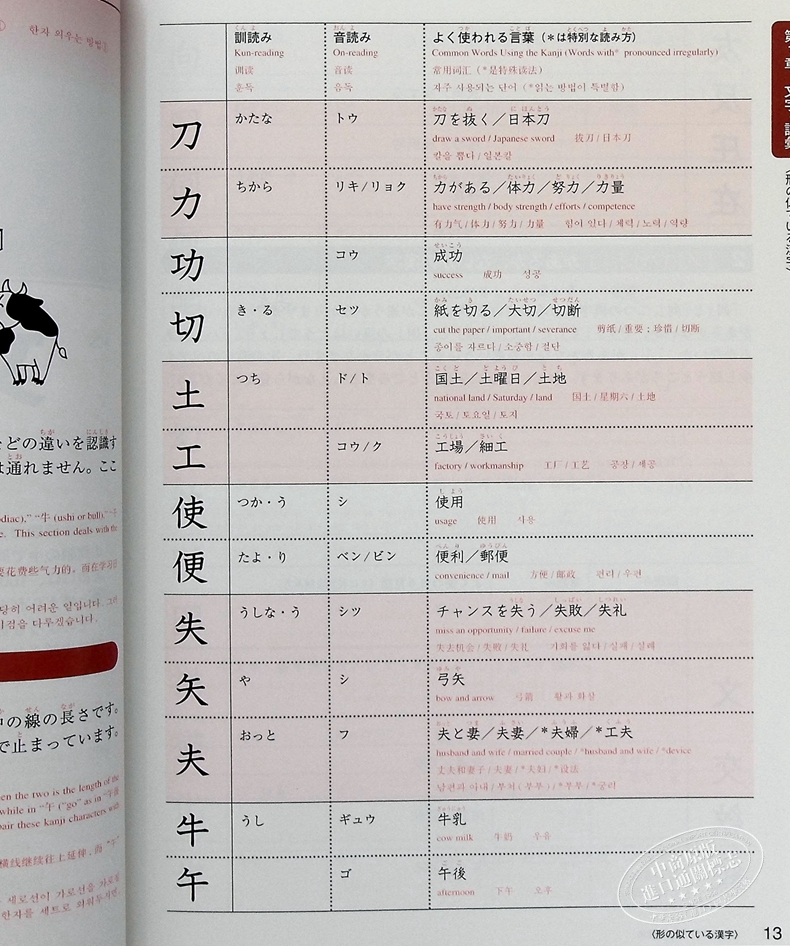 한자 외우는 방법
どの違いを認識す
は通れません。ここ
odiac)," "牛 (ushi or bull)."
e. This section deals with the
要花费些气力的，
당히 어려운 일입니다.
점을 다루겠습니다.
の線の長さです。
で止まっています。
en the two is the length of the
while in "午 ("go" as in "午後
pair these kanji characters with
横线继续往上延伸，而 "午"
세로선이 가로선을
한자를 세트로 외워두시면,
訓読み 音読み よく使われる言葉（＊は特別な読み方）
Kun-reading On-reading Common Words Using the Kanji (Words with* pronounced irregularly)
训读 音读 常用词汇（*是特殊读法）
훈독 음독 자주 사용되는 단어（*읽는 방법이 특별함）
刀 かたな トウ 刀を抜く／日本刀
draw a sword / Japanese sword 拔刀 / 日本刀
칼을 뽑다 / 일본칼
力 ちから リキ/リョク 力がある／体力／努力／力量
have strength / body strength / efforts / competence
有力气 / 体力 / 努力 / 力量 힘이 있다 / 체력 / 노력 / 역량
功 コウ 成功
success 成功 성공
切 き・る セツ 紙を切る／大切／切断
cut the paper / important / severance 剪纸 / 重要；珍惜 / 切断
종이를 자르다 / 소중함 / 절단
土 つち ド/ト 国土／土曜日／土地
national land / Saturday / land 国土 / 星期六 / 土地
국토 / 토요일 / 토지
工 コウ/ク 工場／細工
factory / workmanship 工厂 / 工艺 공장 / 세공
使 つか・う シ 使用
usage 使用 사용
便 たよ・り ベン/ビン 便利／郵便
convenience / mail 方便 / 邮政 편리 / 우편
失 うしな・う シツ チャンスを失う／失敗／失礼
miss an opportunity / failure / excuse me
失去机会 / 失败 / 失礼 기회를 잃다 / 실패 / 실례
矢 や シ 弓矢
bow and arrow 弓箭 활과 화살
夫 おっと フ 夫と妻／夫妻／*夫婦／*工夫
husband and wife / married couple / *husband and wife / *device
丈夫和妻子 / 夫妻 / *夫妇 / *设法
남편과 아내 / 부처(부부) / *부부 / *궁리
牛 うし ギュウ 牛乳
cow milk 牛奶 우유
午 ゴ 午後
afternoon 下午 오후
中商原版
進口通關標志
〈形の似ている漢字〉 13